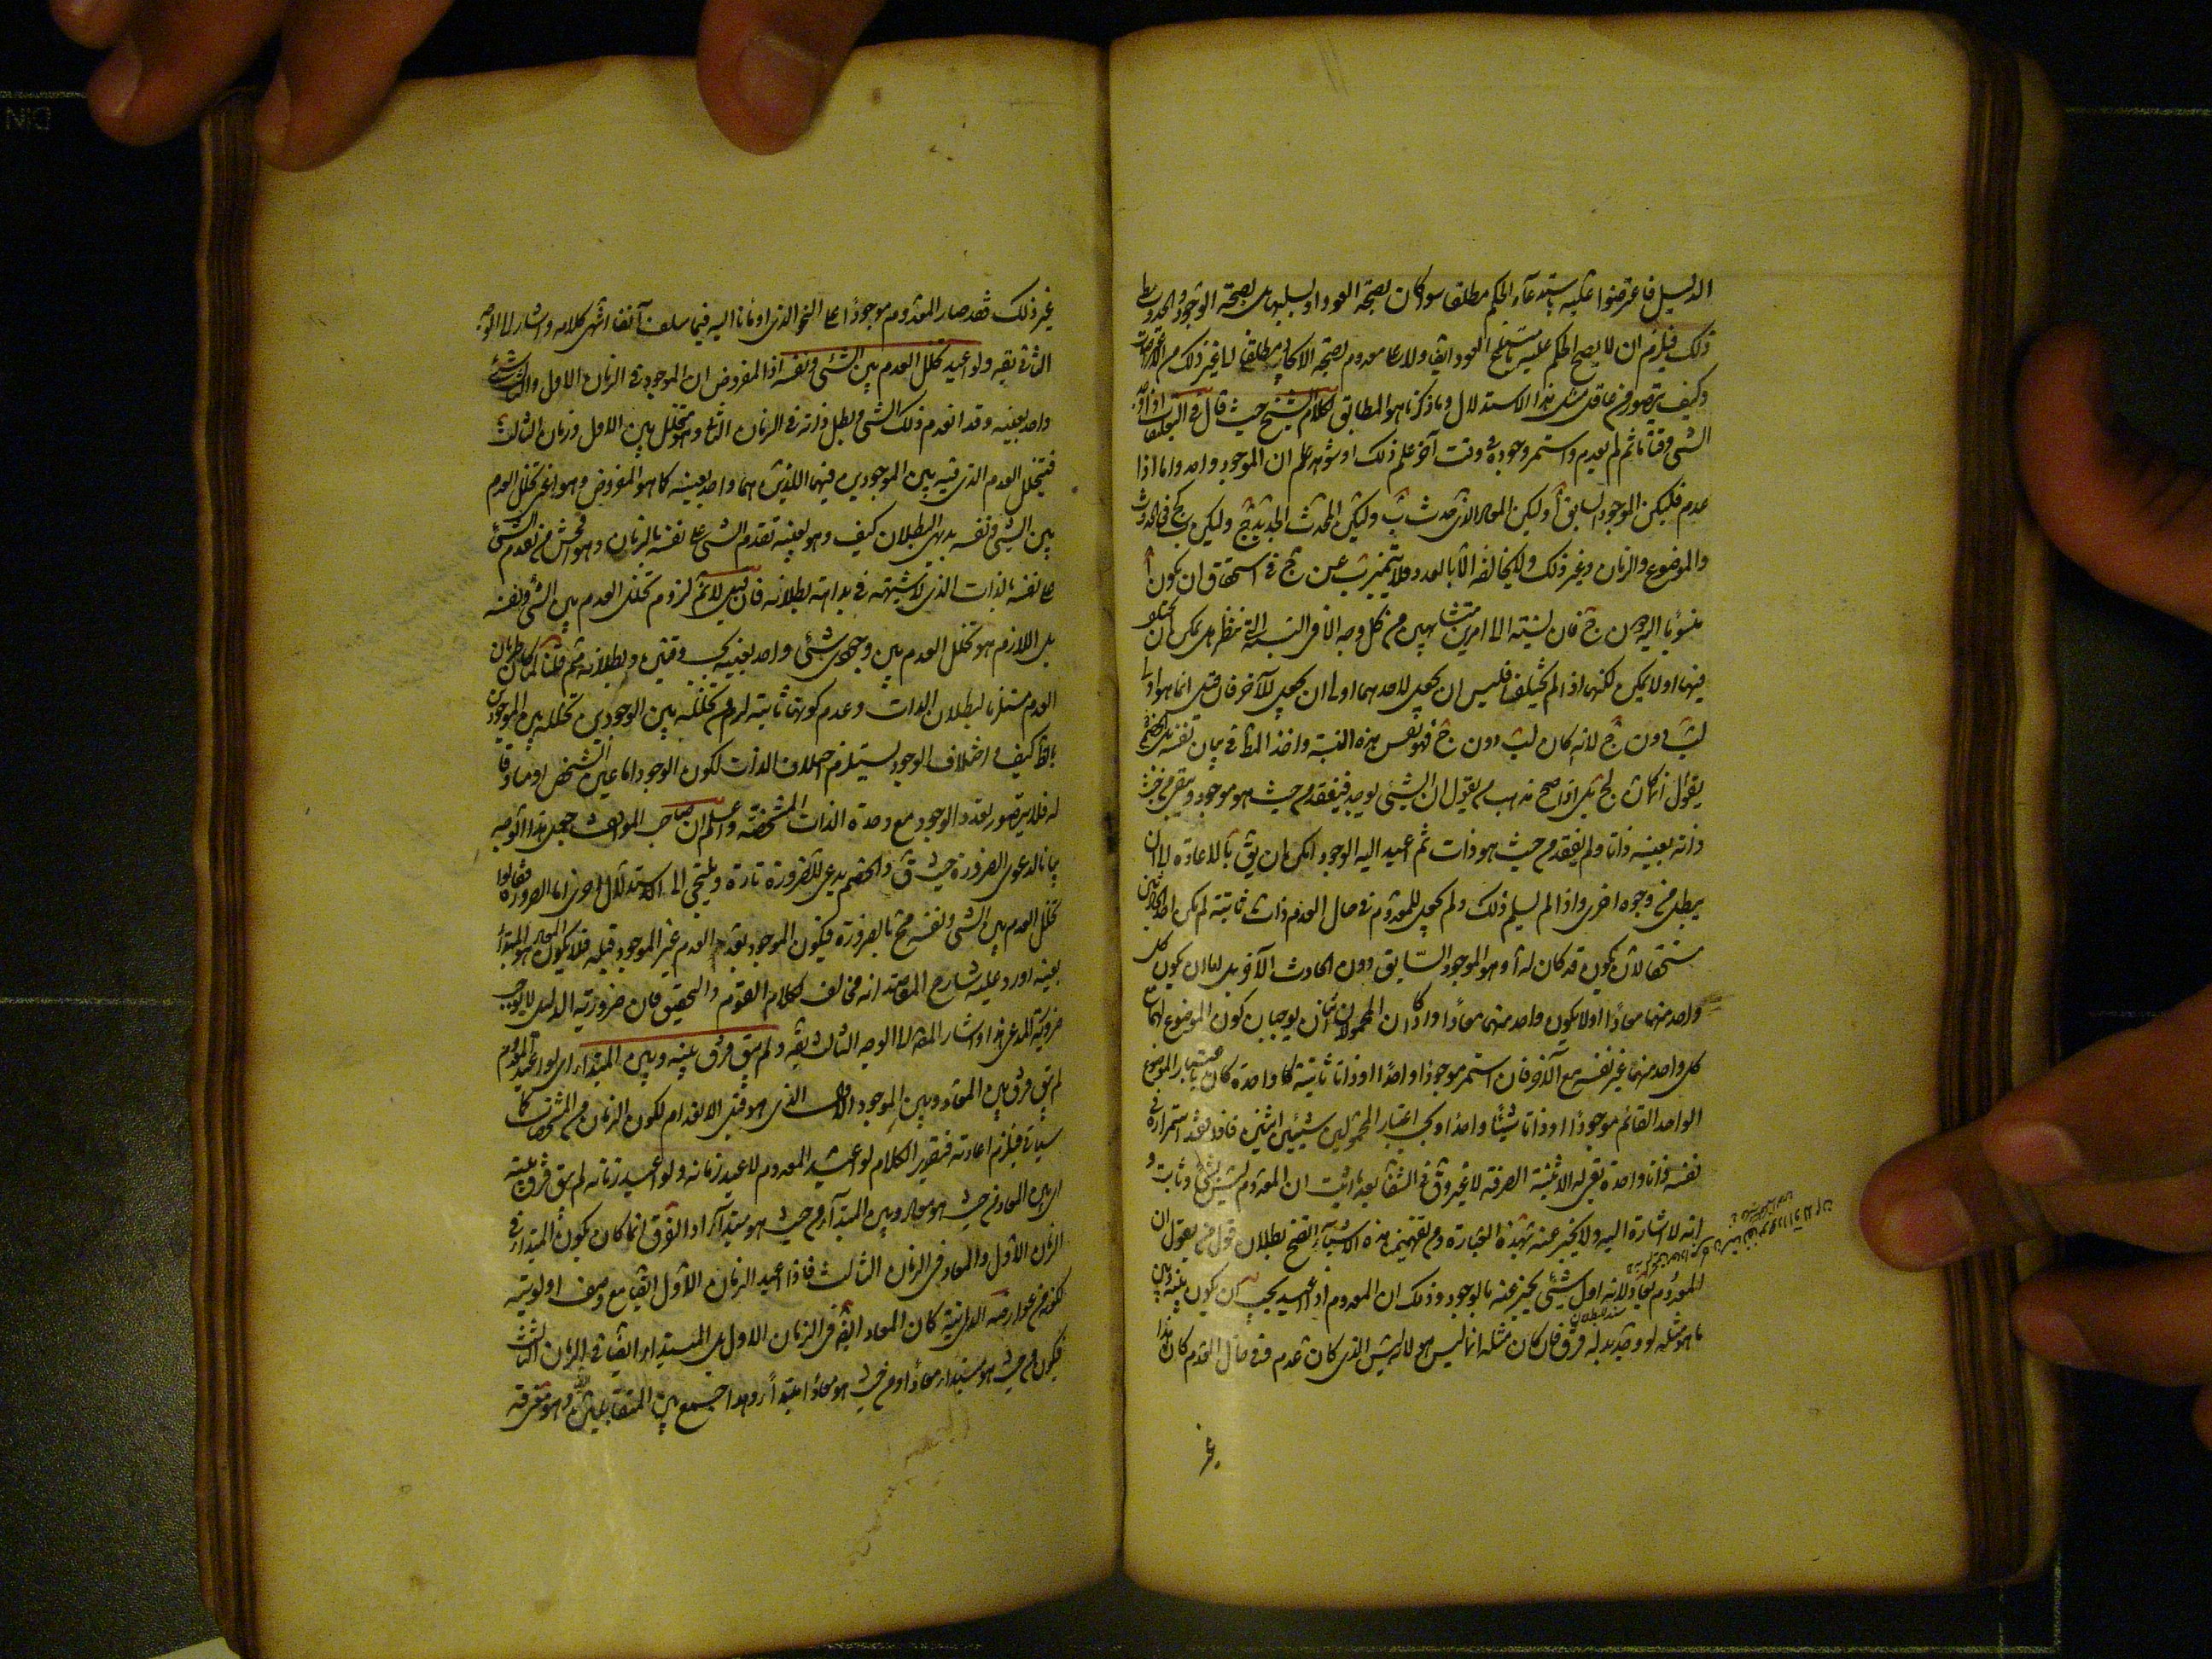 الدليل فاعترضوا عليه باستدعاء الحكم مطلقا سوا كان بصحة العود او بسلبها بل بصحة الوجود والحدوث
ذلك فيلزم ان لا يصح الحكم عليه العود ايضا ولا على معدوم بصحة الايجاد مطلقا الى غير ذلك من
وكيف يتصور من عاقل مثل هذا الاستدلال وما ذكرنا هو المطابق لكلام الشيخ حيث قال في التعليقات اذا وجد
الشئ وقتا ما ثم لم يعدم واستمر وجوده في وقت آخر علم ذلك او شوهد علم ان الموجود واحد واما اذا
عدم فليكن الموجود السابق أ وليكن المعاد الذى حدث ب وليكن المحدث الجديد ج وليكن ب كج في الحدوث
والموضوع والزمان وغير ذلك ولا يخالفه الا بالعدد فلا يتميز ب عن ج في استحقاق ان يكون أ
منسوبا اليه دون ج فان نسبته الى امرين متشابهين من كل وجه الا في النسبة التي ننظر هل يمكن ان
فيهما او لا يمكن لكنهما اذا لم يختلفا فليس ان يجعل لاحدهما اولى ان يجعل للآخر فان قيل انما هو اولى
لب دون ج لانه كان لب دون ج فهو نفس هذه النسبة واخذ المط في بيان نفسه بل الخصم
يقول انما كان لج بلى اذا صح مذهب من يقول ان الشئ يوجد فيفقد من حيث هو موجود ويبقى من حيث
ذاته بعينه ذاتا ولم يفقد من حيث هو ذات ثم اعيد اليه الوجود امكن ان يق بالاعادة الى ان
يبطل من وجوه اخرى واذا لم يسلم ذلك ولم يجعل للمعدوم في حال العدم ذات ثابتة لم يكن احد الحادثين
مستحقا لان يكون قد كان له أ وهو الموجود السابق دون الحادث الآخر بل اما ان يكون كل
واحد منهما معادا او لا يكون واحد منهما معادا واذا كان المحمولان اثنان يوجبان كون الموضوع لهما مع
كل واحد منهما غير نفسه مع الآخر فان استمر موجودا واحدا او ذاتا ثابتة واحدة كان باعتبار الموضوع
الواحد القائم موجودا او ذاتا شيئا واحدا وبحسب اعتبار المحمولين شيئين اثنين فاذا فقد استمراره في
نفسه ذاتا واحدة بقى له الاثنينية الصرفة لا غير وق في الشفا بعد ما اثبت ان المعدوم ليس بشئ وثابت و
انه لا اشارة اليه ولا يخبر عنه بهذه العبارة ومن تفهيمنا هذه الاشياء يتضح بطلان قول من يقول ان
المعدوم يعاد لانه اول شئ يخبر عنه بالوجود وذلك ان المعدوم اذا اعيد يجب ان يكون بينه وبين
ما هو مثله لو وجد بدله فرق فان كان مثله انما ليس هو لانه ليس الذى كان عدم وفي حال العدم كان هذا
غير
غير ذلك فقد صار المعدوم موجودا على النحو الذى اومأنا اليه فيما سلف آنفا انتهى كلامه واشار الى الوجه
الثاني بقوله ولو اعيد تخلل العدم بين الشئ ونفسه اذا المفروض ان الموجود في الزمان الاول والثالث شئ
واحد بعينه وقد انعدم ذلك الشئ وبطل ذاته في الزمان الثانى وهو متخلل بين الاول وزمان الثالث
فتخلل العدم الذى فيه بين الموجودين فيهما اللذين هما واحد بعينه كما هو المفروض وهو اعنى تخلل العدم
بين الشئ ونفسه بديهى البطلان كيف وهو بعينه تقدم الشئ على نفسه بالزمان وهو افحش من تقدم الشئ
على نفسه بالذات الذى لا شبهة في بداهة بطلانه فان قيل لا نم لزوم تخلل العدم بين الشئ ونفسه
بل اللازم هو تخلل العدم بين وجودى شئ واحد بعينه بحسب وقتين وبطلانه ثم قلنا لما كان طريان
العدم مستلزما لبطلان الذات وعدم كونها ثابتة لزم من تخلله بين الوجودين تخلله بين الموجودين
ايضا كيف واختلاف الوجود يستلزم اختلاف الذات لكون الوجود اما عين التشخص او مساوقا
له فلا يتصور تعدد الوجود مع وحدة الذات المشخصة واعلم ان صاحب المواقف جعل هذا الوجه
بيانا لدعوى الضرورة حيث ق والخصم يدعى الضرورة تارة ويلتجئ الى الاستدلال اخرى اما الضرورة فقالوا
تخلل العدم بين الشئ ونفسه مح بالضرورة فيكون الموجود بعد العدم غير الموجود قبله فلا يكون المعاد هو المبتدأ
بعينه اورد عليه شارح المقاصد انه مخالف لكلام القوم والتحقيق فان ضرورية الدليل لا يوجب
ضرورية المدعى هذا واشار المصنف الى الوجه الثالث بقوله ولم يبق فرق بينه وبين المبتدأ اى لو اعيد المعدوم
لم يبق فرق بين المعاد وبين الموجود الاول الذى هو قبل الانعدام لكون الزمان من المشخصات كما
سيأتى فيلزم اعادته فتقرير الكلام لو اعيد المعدوم لاعيد زمانه ولو اعيد زمانه لم يبق فرق بينه
اى بين المعاد من حيث هو معاد وبين المبتدأ من حيث هو مبتدأ اذ الفرق انما كان بكون المبتدأ في
الزمان الاول والمعاد في الزمان الثالث فاذا اعيد الزمان الاول ايضا مع وصف اوليته
لكونه من عوارضه الذاتية كان المعاد ايضا في الزمان الاول بل المبتدأ ايضا في الزمان الثالث
فيكون من حيث هو مبتدأ معادا ومن حيث هو معاد مبتدأ وهذا جمع بين المتقابلين